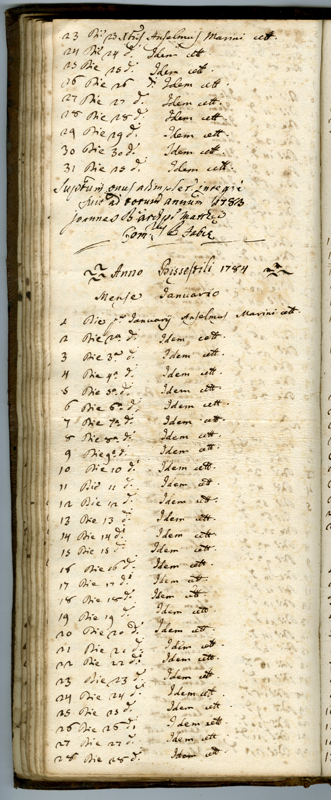 23 Die 23 d.ti Anselmus Marini cett
24 Die 24 d.i Idem cett
25 Die 25 d.i Idem cett.
26 Die 26 d. Idem cett
27 Die 27 d.i Idem cett
28 Die 28 d.i Idem cett.
29 Die 29 d.i Idem cett.
30 Die 30 d.i Idem cett.
31 Die 23 d.i Idem cett.
onus adimplet integre
ad totum annum 1783
Joannes B. Archip. Mattheus
Com.
Anno Bissestili 1784
Mense Januario
1 Die p.a Januarij Anselmus Marini cett.
2 Die 2.a d.i Idem cett.
3 Die 3.a d.i Idem cett
4 Die 4.a d.i Idem cett
5 Die 5.a d.i Idem cett.
6 Die 6.a d.i Idem cett.
7 Die 7.a d.i Idem cett.
8 Die 8.a d.i Idem cett.
9 Die 9.a d.i Idem cett
10 Die 10 d.i Idem cett.
11 Die 11 d.i Idem cett
12 Die 12 d.i Idem cett.
13 Die 13 d.i Idem cett.
14 Die 14 d.i Idem cett
15 Die 15 d.i Idem cett
16 Die 16 d.i Idem cett.
17 Die 17 d.i Idem cett
18 Die 18 d.i Idem cett
19 Die 19 d.i Idem cett
20 Die 20 d.i Idem cett
21 Die 21 d.i Idem cett
22 Die 22 d.i Idem cett.
23 Die 23 d.i Idem cett
24 Die 24 d.i Idem cett
25 Die 25 d.i Idem cett.
26 Die 26 d.i Idem cett
27 Die 27 d.i Idem cett.
28 Die 28 d.i Idem cett